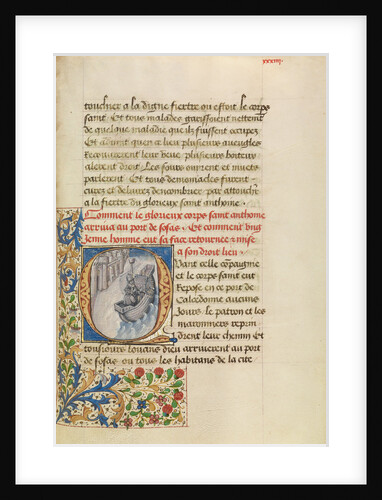 xxxiiij
touchier a la digne fiertre ou estoit le corps
saint. Et tous malades garissoient nettement
de quelque maladie que ilz fuissent occupez
Et advint que en ce lieu plusieurs aveugles
Recouvrerent leur veue plusieurs boiteux
alerent droit. Les sours ouirent et muets
parlerent Et tous demoniacles furent
curez et delivrez dencombrier par attouchier
a la fiertre du glorieux saint anthoine.
Comment le glorieux corps saint anthoine
arriva au port de sosas. Et comment ung
Jenne homme eut sa face retournee & mise
a son droit lieu.
Quant celle compaignie
et le corps saint eut
Repose en ce port de
Calcedonne aucuns
Jours. le patron et les
maronniers reprin
drent leur chemin Et
tousiours louans dieu arriverent au port
de sosas ou tous les habitans de la cite